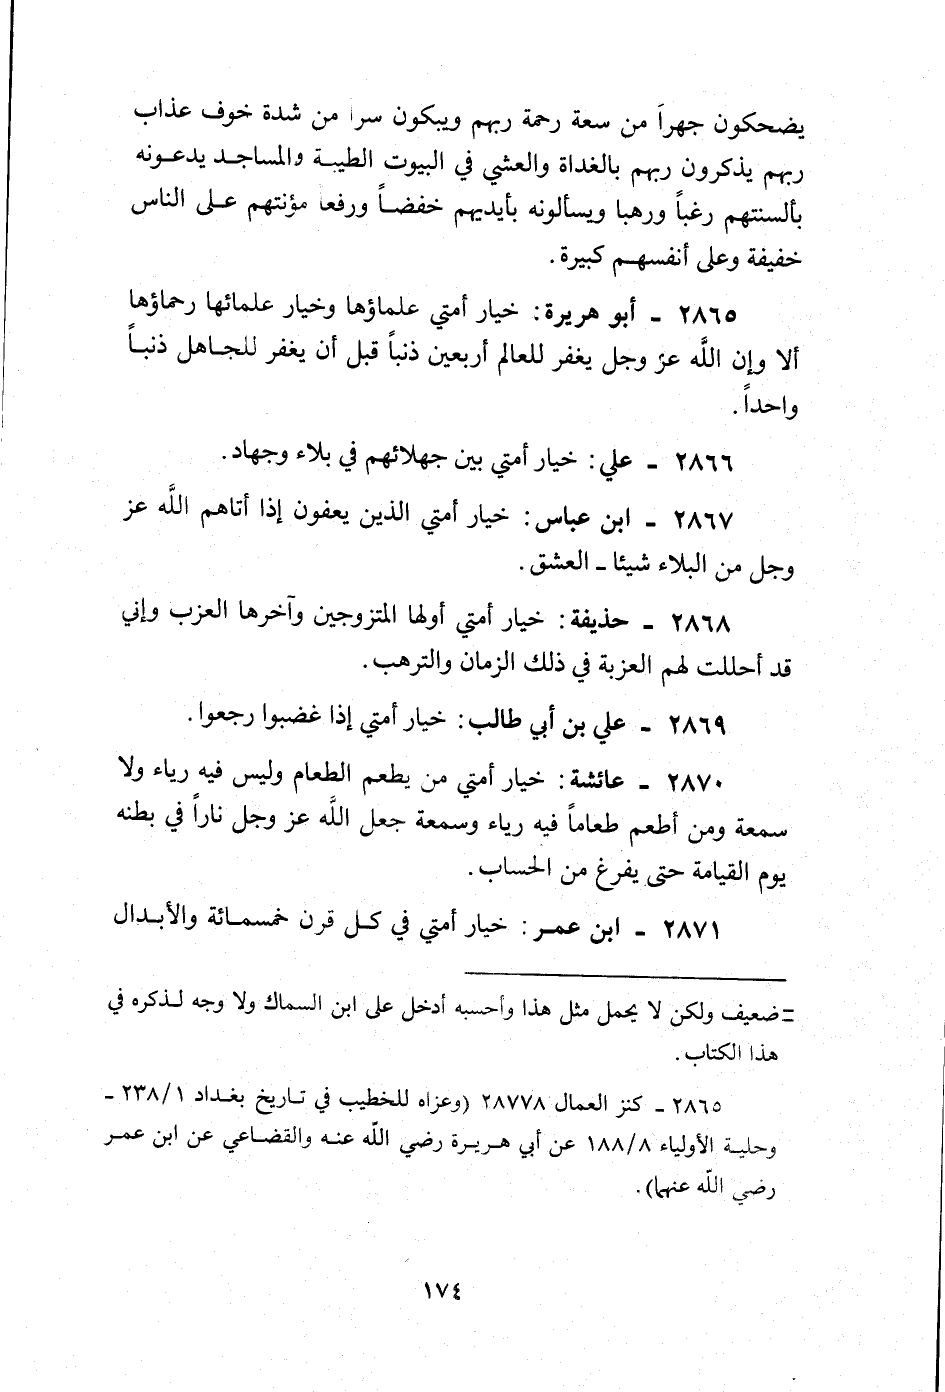 يضحكون جهراً من سعة رحمة ربهم ويبكون سراً من شدة خوف عذاب
ربهم يذكرون ربهم بالغداة والعشي في البيوت الطيبة والمساجد يدعونه
بألسنتهم رغباً ورهبا ويسألونه بأيديهم خفضاً ورفعا مؤنتهم على الناس
خفيفة وعلى أنفسهم كبيرة.
٢٨٦٥ - أبو هريرة: خيار أمتي علماؤها وخيار علمائها رحماؤها
ألا وإن اللَّه عز وجل يغفر للعالم أربعين ذنباً قبل أن يغفر للجاهل ذنباً
واحداً.
٢٨٦٦ - علي: خيار أمتي بين جهلائهم في بلاء وجهاد.
٢٨٦٧ - ابن عباس: خيار أمتي الذين يعفون إذا أتاهم اللَّه عز
وجل من البلاء شيئا - العشق.
٢٨٦٨ - حذيفة: خيار أمتي أولها المتزوجين وآخرها العزب وإني
قد أحللت لهم العزبة في ذلك الزمان والترهب.
٢٨٦٩ - علي بن أبي طالب: خيار أمتي إذا غضبوا رجعوا.
٢٨٧٠ - عائشة: خيار أمتي من يطعم الطعام وليس فيه رياء ولا
سمعة ومن أطعم طعاماً فيه رياء وسمعة جعل اللَّه عز وجل ناراً في بطنه
يوم القيامة حتى يفرغ من الحساب.
٢٨٧١ - ابن عمر: خيار أمتي في كل قرن خمسمائة والأبدال
= ضعيف ولكن لا يحمل مثل هذا وأحسبه أدخل على ابن السماك ولا وجه لذكره في
هذا الكتاب.
٢٨٦٥ - كنز العمال ٢٨٧٧٨ (وعزاه للخطيب في تاريخ بغداد ٢٣٨/١ -
وحلية الأولياء ١٨٨/٨ عن أبي هريرة رضي اللَّه عنه والقضاعي عن ابن عمر
رضي اللَّه عنهما).
١٧٤